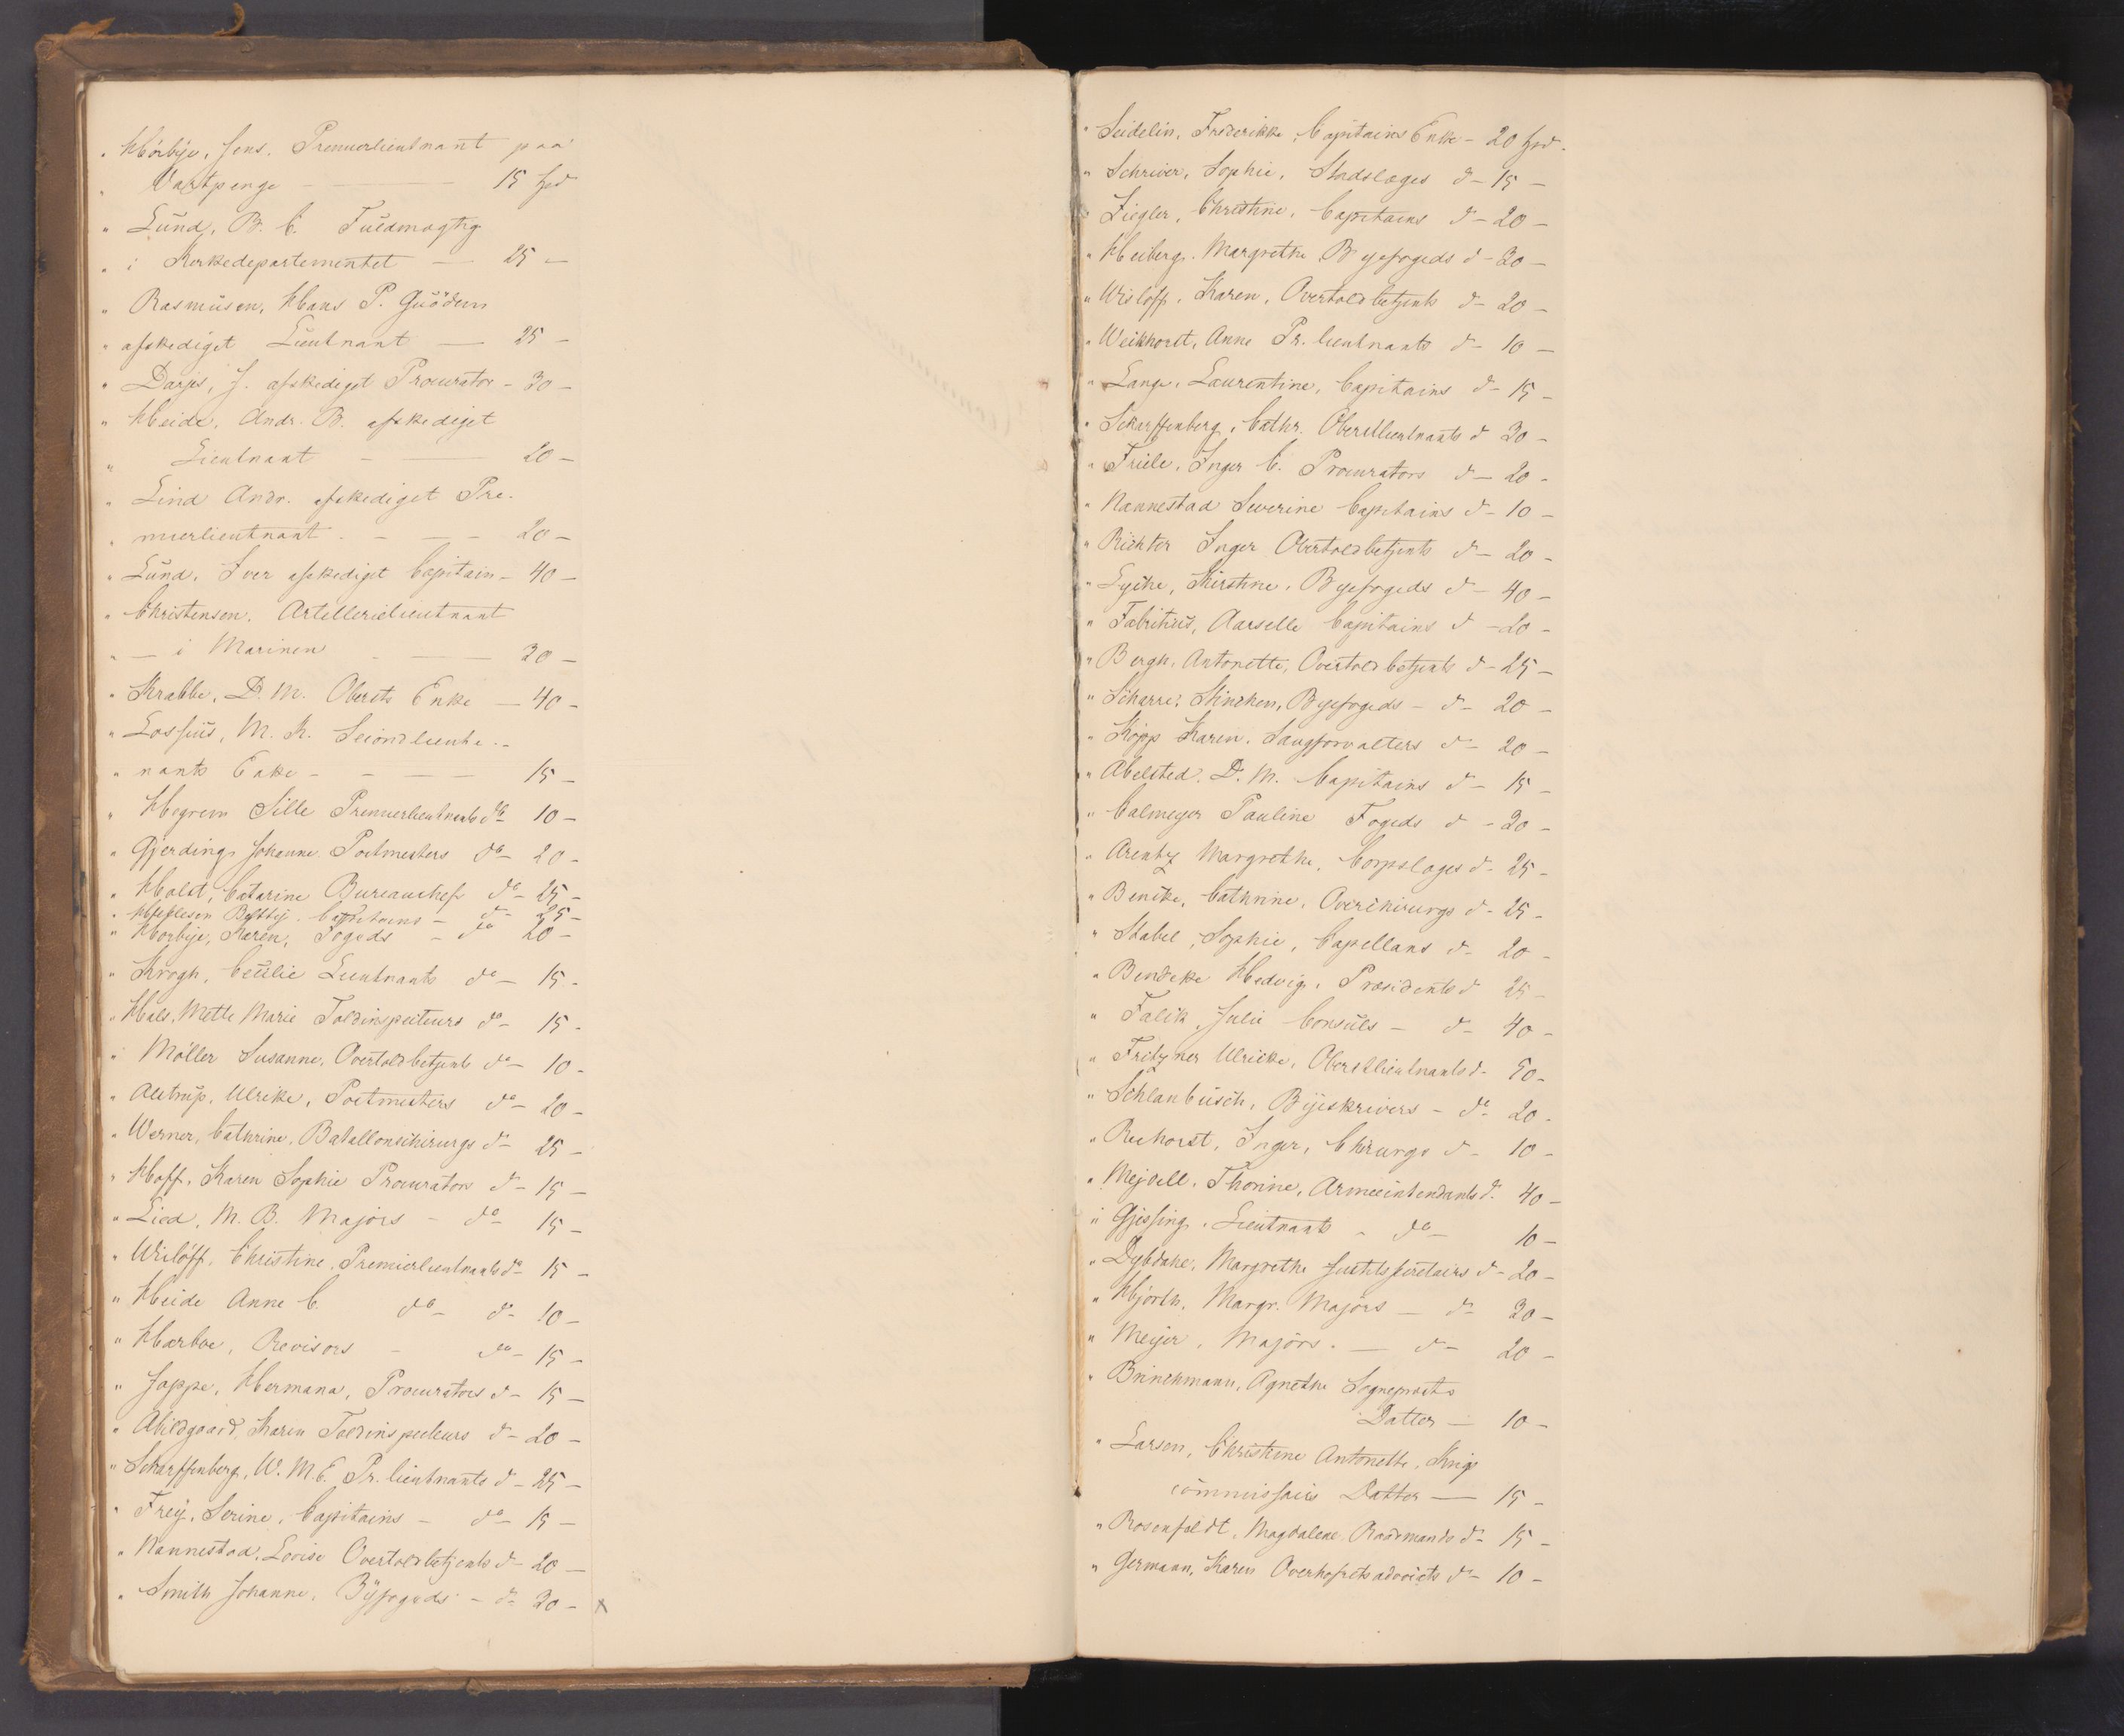 " Hörbÿe, Jens. Premierlieutnant paa
" Vartpenge — 15 Spd
" Lund, B. C. Fuldmægtig
" i Kirkedepartementet — 25 —
" Rasmusen, Hans P.
" afskediget Lieutnant — 25 —
" Darjes, J. afskediget Procurator - 30 —
" Heide, Andr. B. afskediget
" Lieutnant — 20 —
" Lind Andr. afskediget Pre-
" mierlieutnant - — 20 —
" Lund, Iver afskediget Capitain - 40 —
" Christensen, Artellerielieutnant
" — i Marinen — 30 —
" Krabbe, D. M. Obersts Enke — 40 -
" Lossius, M. K. Secondlieute-
" nants Enke - — 15 —
" Hegrem Sille Premierlieutnants do 10 —
" Gjerding, Johanne Postmesters do - 20 -
" Holst, Catarine Bureauchefs do - 25 -
" Betty. Capitains - do 25 -
" Horbÿe, Karen, Fogeds - do 20 -
" Krogh, Cecilie Lieutnants do - 15 -
" Hals, Mette Marie Toldinspecteurs do - 15 -
" Möller Susanne, Overtoldbetjents do - 10 -
" Alstrup, Ulrike, Postmesters do - 20 -
" Werner, Cathrine, Batallonschirurgs do - 25 -
" Hoff, Karen Sophie Procurators do - 15 —
" Lied, M. B. Majors - do 15 —
" Wislöff, Christine, Premierlieutnants do - 15 -
" Heide Anne C. do - do - 10 —
" Harboe, Revisors - do - 15 —
" Jappe, Hermana, Procurators do - 15 —
" Abildgaard, Karen Toldinspecteurs do - 20 —
" Scharffenberg, W. M. E. Pr. lieutnants do - 25 —
" Frey, Serine, Capitains - do - 15 —
" Nannestad, Lovise Overtoldbetjents do - 20 —
" Smith Johanne, Bÿfogeds - do 30 - x
" Seidelin, Frederikke, Capitains Enke - 20 Spd.
" Schriver, Sophie, Stadslæges do - 15 —
" Ziegler, Christine, Capitains do - 20 —
" Heiberg, Margrethe Byefogeds do - 30 —
" Wislöff, Karen, Overtoldbetjents do - 20 —
" Weikhorst, Anne Pr. lieutnants do - 10 —
" Lange, Laurentine, Capitains do - 15 -
" Scharffenberg, Cathr. Oberstlieutnants do 30 -
" Friele, Inger C. Procurators do — 20 -
" Nannestad Severine Capitains do - 10 —
" Richter Inger Overtoldbetjents do - 20 -
" Lyche, Kirstine, Byefogeds do - 40 -
" Fabritius, Aarselle Capitains do - 20 -
" Bergh, Antonette, Overtoldbetjents do - 25 —
" Scharre, Stinchen, Byefogeds - do - 20 —
" Köpp Karen, Laugforvalters do - 20 —
" Abelsted, D. M. Capitains do - 15 -
" Calmeyer Pauline Fogeds do - 30 -
" Arentz Margrethe, Corpslæges do - 25 -
" Beneke, Cathrine, Overchirurgs do - 25 -
" Stabel, Sophie, Capellans do - 20 -
" Bendeke Hedvig, Præsidents do 25 -
" Falck, Julie Consuls - do - 40 -
" Fritzner Ulricke, Oberstlieutnants do - 50 -
" Schlanbusch, Bÿeskrivers - do 20 -
" Reehorst, Inger, Chirurgs do - 10 -
" Mejdell, Thorine, Armeeintendants do 40 -
" Gjessing, Lieutnants - do — 10 -
" Dybdahl, Margrethe Justitssecretairs do - 20 -
" Hjorth, Margr. Majors — do 30 -
" Meyer, Majors. — do - 20 -
" Brinchmann, Agnethe Sogneprests
Datter — 10 -
" Larsen, Christine Antonette, Krigs
commissairs Datter — 15 -
" Rosenfeldt, Magdalene Raadmands do - 15 -
" Germann, Karen Overhofretsadvocats do - 10 -